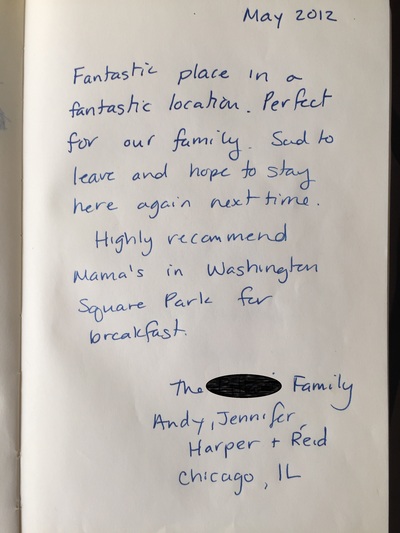 May 2012
Fantastic place in a
fantastic location. Perfect
for our family. Sad to
leave and hope to stay
here again next time.
Highly recommend
Mama's in Washington
Square Park for
breakfast.
The Family
Andy, Jennifer,
Harper + Reid
Chicago, IL